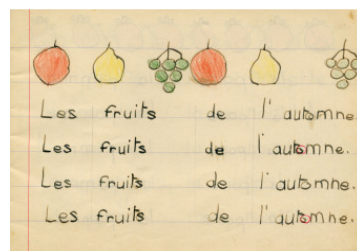 Les fruits de l'automne.
Les fruits de l'automne.
Les fruits de l'automne.
Les fruits de l'automne.